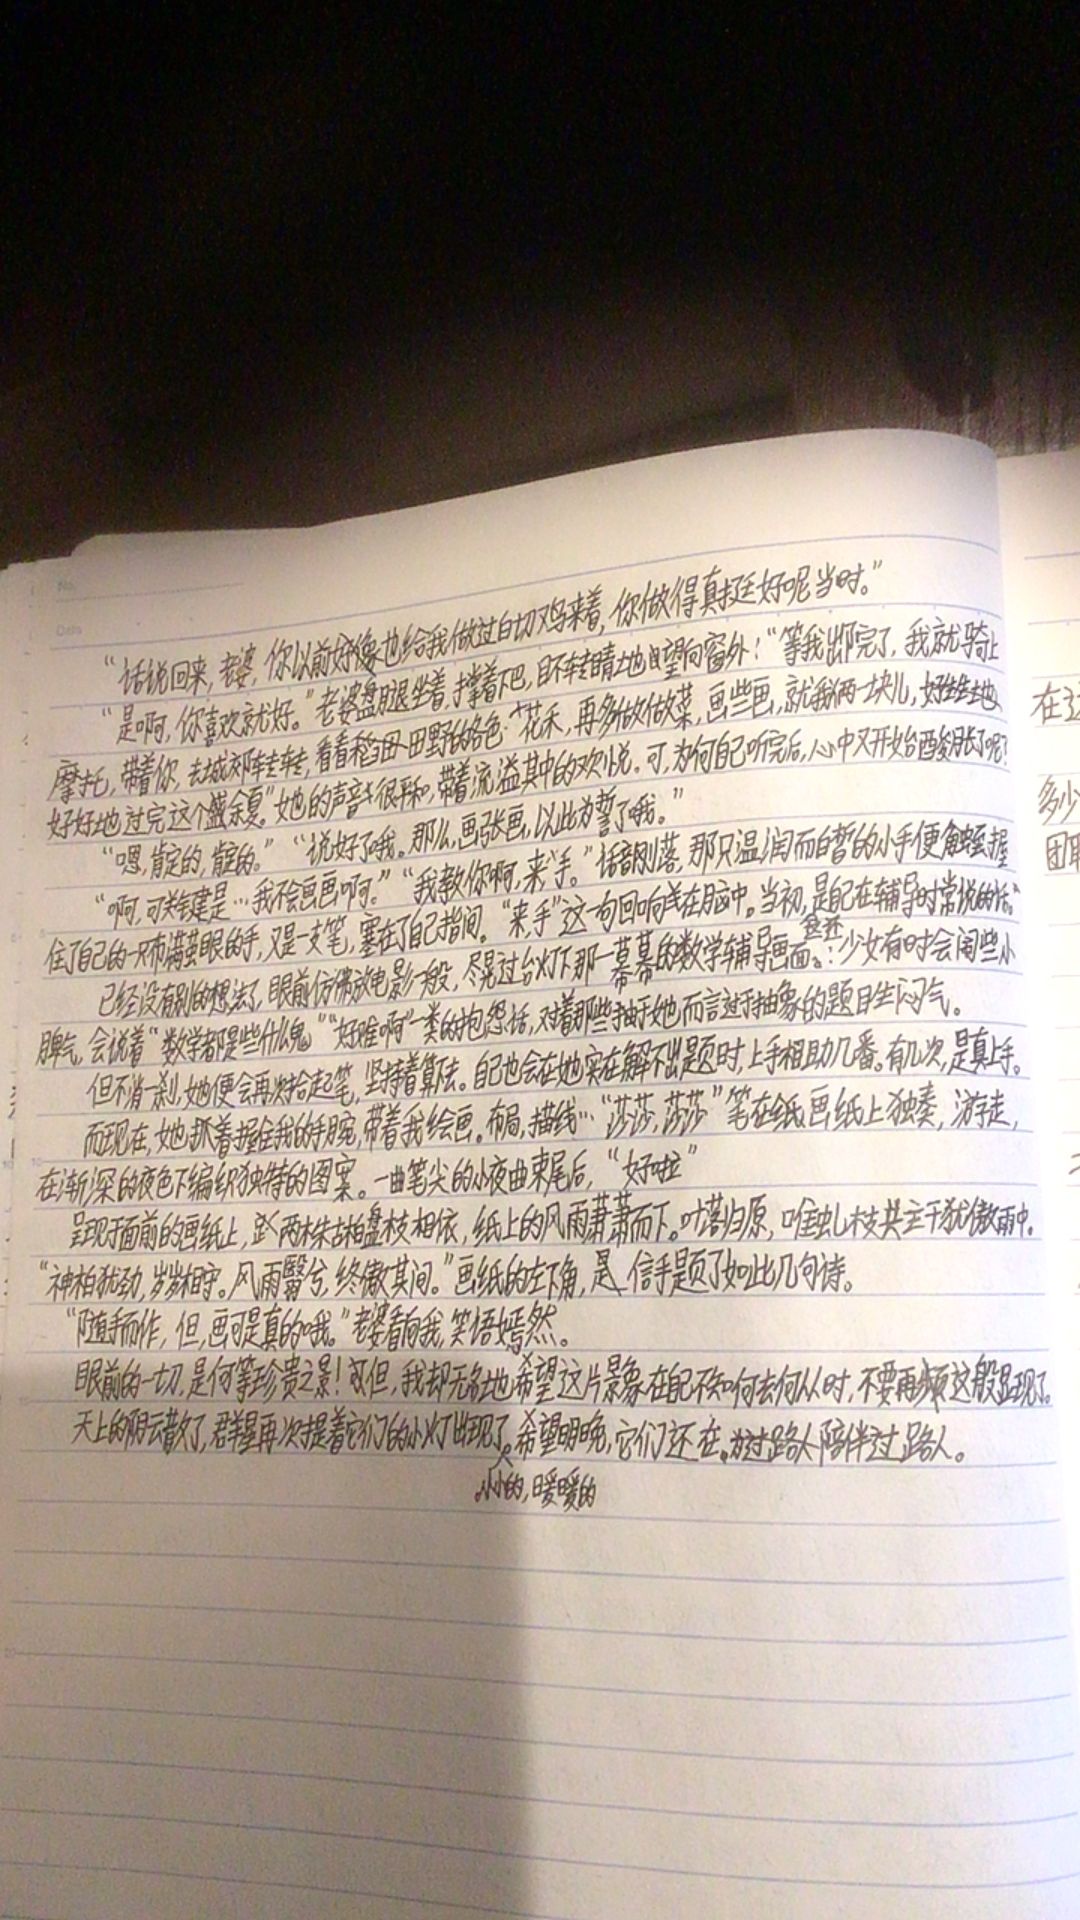 “话说回来，老婆，你以前好像也给我做过白切鸡来着，你做得真挺好呢当时。”
“是啊，你喜欢就好。”老婆盘腿坐着，撑着下巴，目不转睛地望向窗外：“等我出院完了，我就骑上
摩托，带着你，去城郊转转，看看稻田田野的各色花禾，再多做做菜，画些画，就我俩一块儿，好生生地、
好好地过完这个盛余夏。”她的声音很平和，带着流溢其中的欢悦。可，为何自己听完后，心中又开始酸胀了呢？
“嗯，肯定的，肯定的。”“说好了哦。那么，画张画，以此为誓了哦。”
“啊，可关键是…我不会画画啊。”“我教你啊，来，手。”话音刚落，那只温润而白皙的小手便触握
住了自己的一只布满茧的手，又是一支笔，塞在了自己指间。“来，手”这一句回响在脑中。当初，是自己在辅导时常说的话。
已经没有别的想法了，眼前仿佛放电影一般，尽晃过台灯下那一幕幕的数学辅导画面。：少女有时会闹些小
脾气，会说着“数学都是些什么鬼”“好难啊”一类的抱怨话，对着那些于她而言过于抽象的题目生闷气。
但不消一刹，她便会再次拾起笔，坚持着算下去。自己也会在她实在解不出题时，上手相助几番。有几次，是真上手。
而现在，她握住我的手腕，带着我绘画。布局，描线…“莎莎，莎莎”笔在画纸上独奏，游走，
在渐深的夜色下编织独特的图案。一曲笔尖的小夜曲束尾后，“好啦”
呈现于面前的画纸上，两株古柏盘枝相依，纸上的风雨萧萧而下。叶落归原，唯虬枝共主干犹傲雨中。
“神柏犹劲，岁岁相守。风雨翳兮，终傲其间。”画纸的左下角，是信手题了如此几句诗。
“随手而作，但，画可是真的哦。”老婆看向我，笑语嫣然。
眼前的一切，是何等珍贵之景！但，我却无名地希望这片景象在自己不知何去何从时，不要再频这般显现了。
天上的阴云散了，群星再次提着它们的小灯出现了，希望明晚，它们还在。为过路人陪伴过路人。
小小的，暖暖的